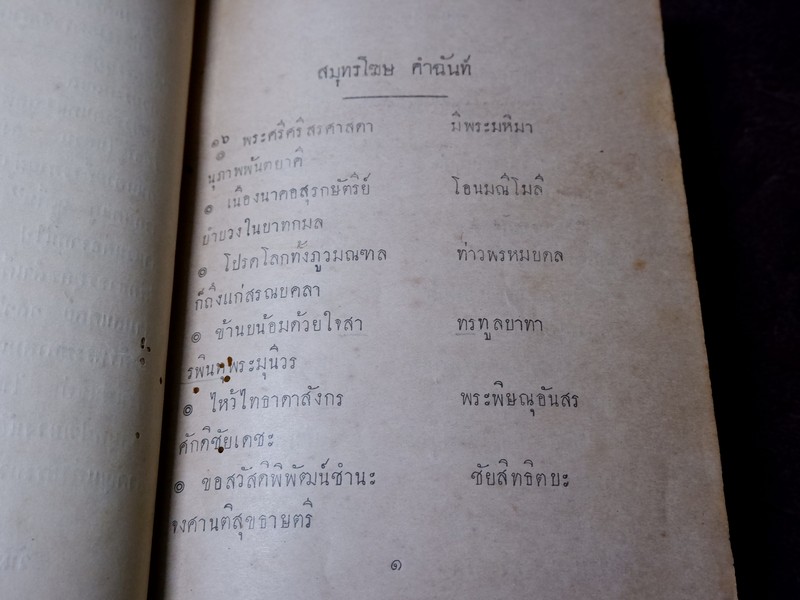 สมุทรโฆษ คำฉันท์
๑๖ พระศรีศรีสรศาสดา มีพระมหิมา
นุภาพพันตยาคี
๏ เนืองนาคอสุรกษัตริย์ โอนมณีโมลี
ยำบวงในบาทกมล
๏ โปรดโลกทั้งภูวมณฑล ท่าวพรหมบดล
ก็ถึงแก่สรณบดลา
๏ ข้านบน้อมด้วยใจสา ทรทูลบาทา
รพินทุพระมุนิวร
๏ ไหว้ไทธาดาสังกร พระพิษณุอันสร
ศักดิชัยเดชะ
๏ ขอสวัสดิพิพัฒน์ชำนะ ชัยสิทธิตบะ
จงศานติสุขธายตรี
๑